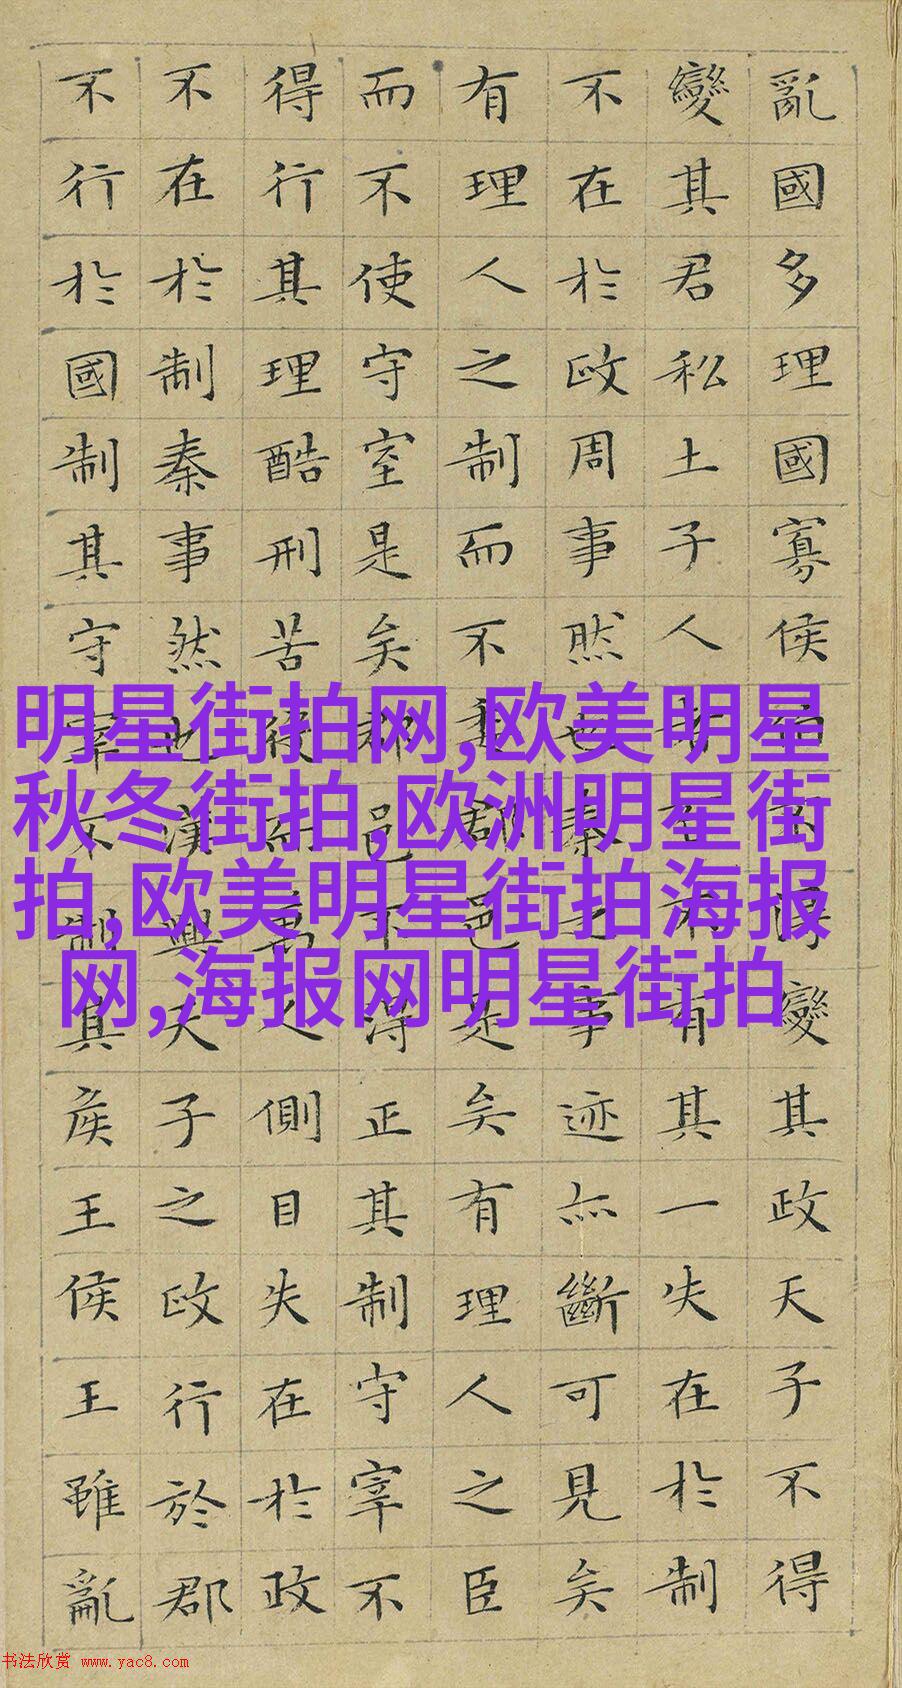 亂國多理國寡侯伯不得變其政天子不得
變其君私土子人者百不有其一失在於制
不在於政周事然也秦之事迹亦斷可見矣
有理人之制而不委郡邑是矣有理人之臣
而不使守宰是矣郡邑不得正其制守宰不
得行其理酷刑苦役而萬人側目失在於政
不在於制秦事然也漢興天子之政行於郡
不行於國制其守宰不制其侯王侯王雖亂
明星街拍网,欧美明星
秋冬街拍,欧洲明星街
拍,欧美明星街拍海报
网,海报网明星街拍
书法欣赏 www.yac8.com